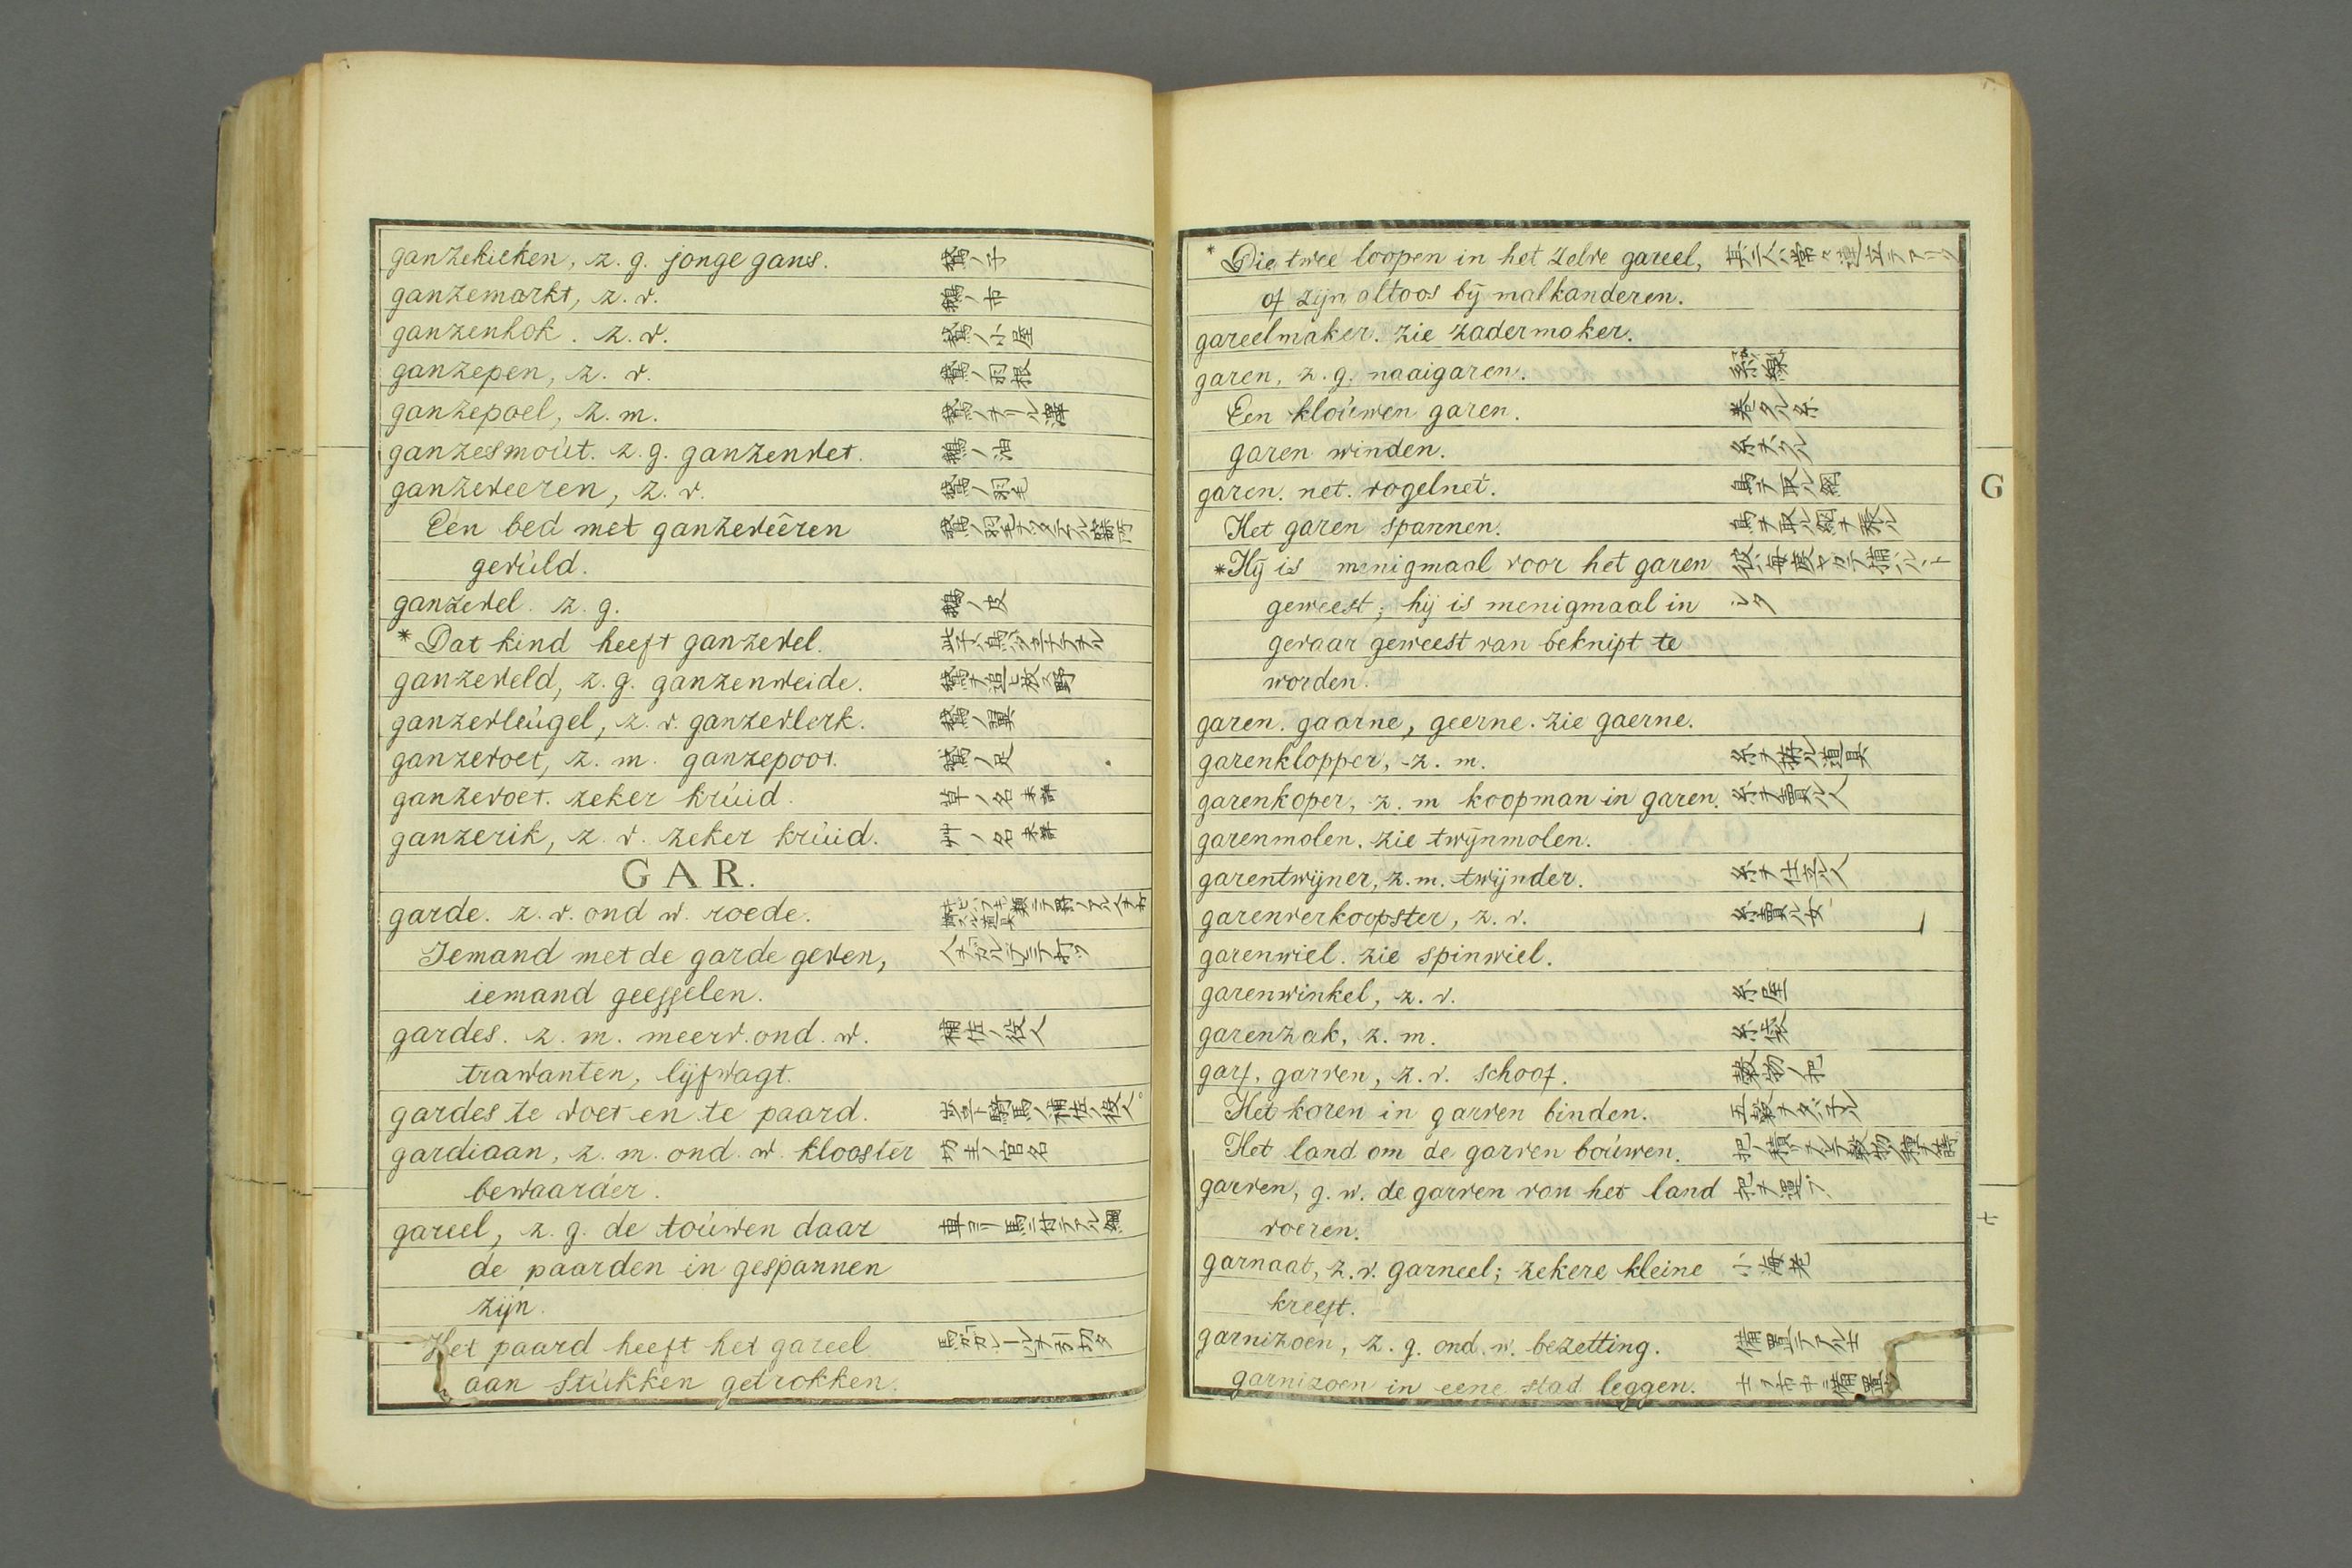 ganzekieken, z. g. jonge gans. 鵞ノ子
ganzemarkt, z. v. 鵝ノ市
ganzenhok. z. v. 鵞ノ小屋
ganzepen, z. v. 鵞ノ羽根
ganzepoel, z. m. 鵞ノヲリル澤
ganzesmoút. z. g. ganzenvet. 鵝ノ油
ganzeveeren, z. v. 鵞ノ羽毛
Een bed met ganzevêêren
gevúld.
ganzevel. z. g. 鵝ノ皮
* Dat kind heeft ganzevel.
ganzeveld, z. g. ganzenweide. 鵞ヲ追ヒ放ス野
ganzevleúgel, z. v. ganzevlerk. 鵞ノ翼
ganzevoet, z. m. ganzepoot. 鵞ノ足
ganzevoet. zeker krúid. 草ノ名 未詳
ganzerik, z. v. zeker krúid. 艸ノ名 未詳
GAR.
garde. z. v. ond w. roede.
Iemand met de garde geven,
iemand geesselen.
gardes. z. m. meerv. ond. w. 補佐ノ役人
trawanten, lijfwagt.
gardes te voet en te paard. 歩卒騎馬ノ補佐ノ役人
gardiaan, z. m. ond. w. klooster 坊主ノ官名
bewaarder.
gareel, z. g. de toúwen daar 車ヨリ馬ニ付テアル綱
de paarden in gespannen
zijn.
Het paard heeft het gareel
aan stúkken getrokken.
* Die twee loopen in het zelve gareel, 其二人ハ常々連立テアリク
of zijn altoos bij malkanderen.
gareelmaker. zie zadermaker.
garen, z. g. naaigaren.
Een kloúwen garen. 巻タル糸
garen winden. 糸ヲクル
garen. net. vogelnet. 鳥ヲ取ル網
Het garen spannen. 鳥ヲ取ル網ヲ張ル
* Hij is menigmaal voor het garen
geweest; hij is menigmaal in
gevaar geweest van beknipt te
worden.
garen. gaarne, geerne. zie gaerne.
garenklopper, z. m.
garenkoper, z. m koopman in garen. 糸ヲ賣ル人
garenmolen. zie twijnmolen.
garentwijner, z. m. twijnder.
garenverkoopster, z. v. 糸賣ル女
garenwiel. zie spinwiel.
garenwinkel, z. v. 糸屋
garenzak, z. m. 糸袋
garf, garven, z. v. schoof. 穀物ノ把
Het koren in garven binden. 五穀ヲタバネル
Het land om de garven boúwen.
garven, g. w. de garven van het land 把ヲ運ブ
voeren.
garnaat, z. v. garneel; zekere kleine 小海老
kreeft.
garnizoen, z. g. ond. w. bezetting. 備置テアル士
garnizoen in eene stad leggen. 士ヲ市中ニ備置ク
G